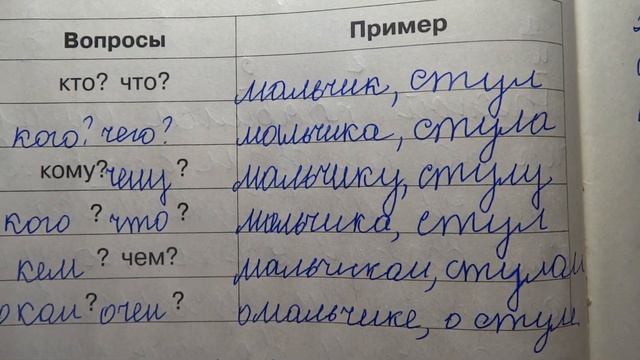 Вопросы Пример
кто? что? мальчик, стул
кого? чего? мальчика, стула
кому? чему? мальчику, стулу
кого ? что ? мальчика, стул
кем ? чем? мальчиком, стулом
о ком? о чем ? о мальчике, о стуле